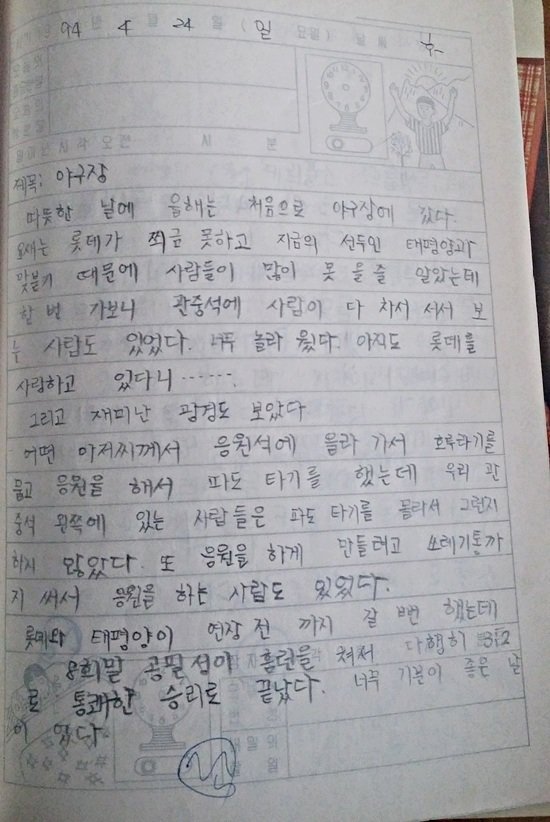 94 년 4 월 24 일 (일 요일) 날씨
제목: 야구장
따뜻한 날에 올해는 처음으로 야구장에 갔다.
요새는 롯데가 쬐금 못하고 지금의 선두인 태평양과
맞붙기 때문에 사람들이 많이 못 올줄 알았는데
한 번 가보니 관중석에 사람이 다 차서 서서 보
는 사람도 있었다. 너무 놀라 웠다. 아직도 롯데를
사랑하고 있다니…….
그리고 재미난 광경도 보았다
어떤 아저찌께서 응원석에 올라 가서 호루라기를
물고 응원을 해서 파도 타기를 했는데 우리 관
중석 왼쪽에 있는 사람들은 파도 타기를 몰라서 그런지
하지 않았다. 또 응원을 하게 만들려고 쓰레기통까
지 써서 응원을 하는 사람도 있었다.
롯데와 태평양이 연장전 까지 갈 뻔 했는데
8회말 공필성이 홈런을 쳐서 다행히 3:2
로 통쾌한 승리로 끝났다. 너무 기분이 좋은 날
이 었다